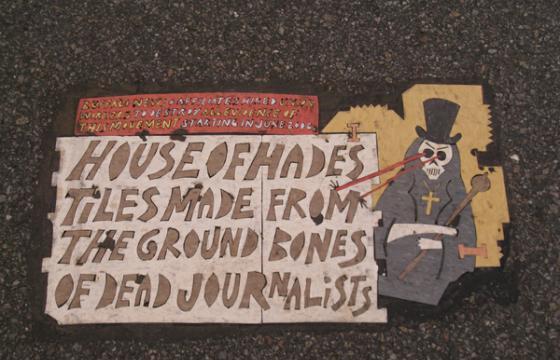 BUFFALO NEWS + AFFILIATES HIRED UNION
TO DESTROY ALL EVIDENCE OF
THIS MOVEMENT STARTING IN JUNE 2006
HOUSE OF HADES
TILES MADE FROM
THE GROUND BONES
OF DEAD JOURNALISTS